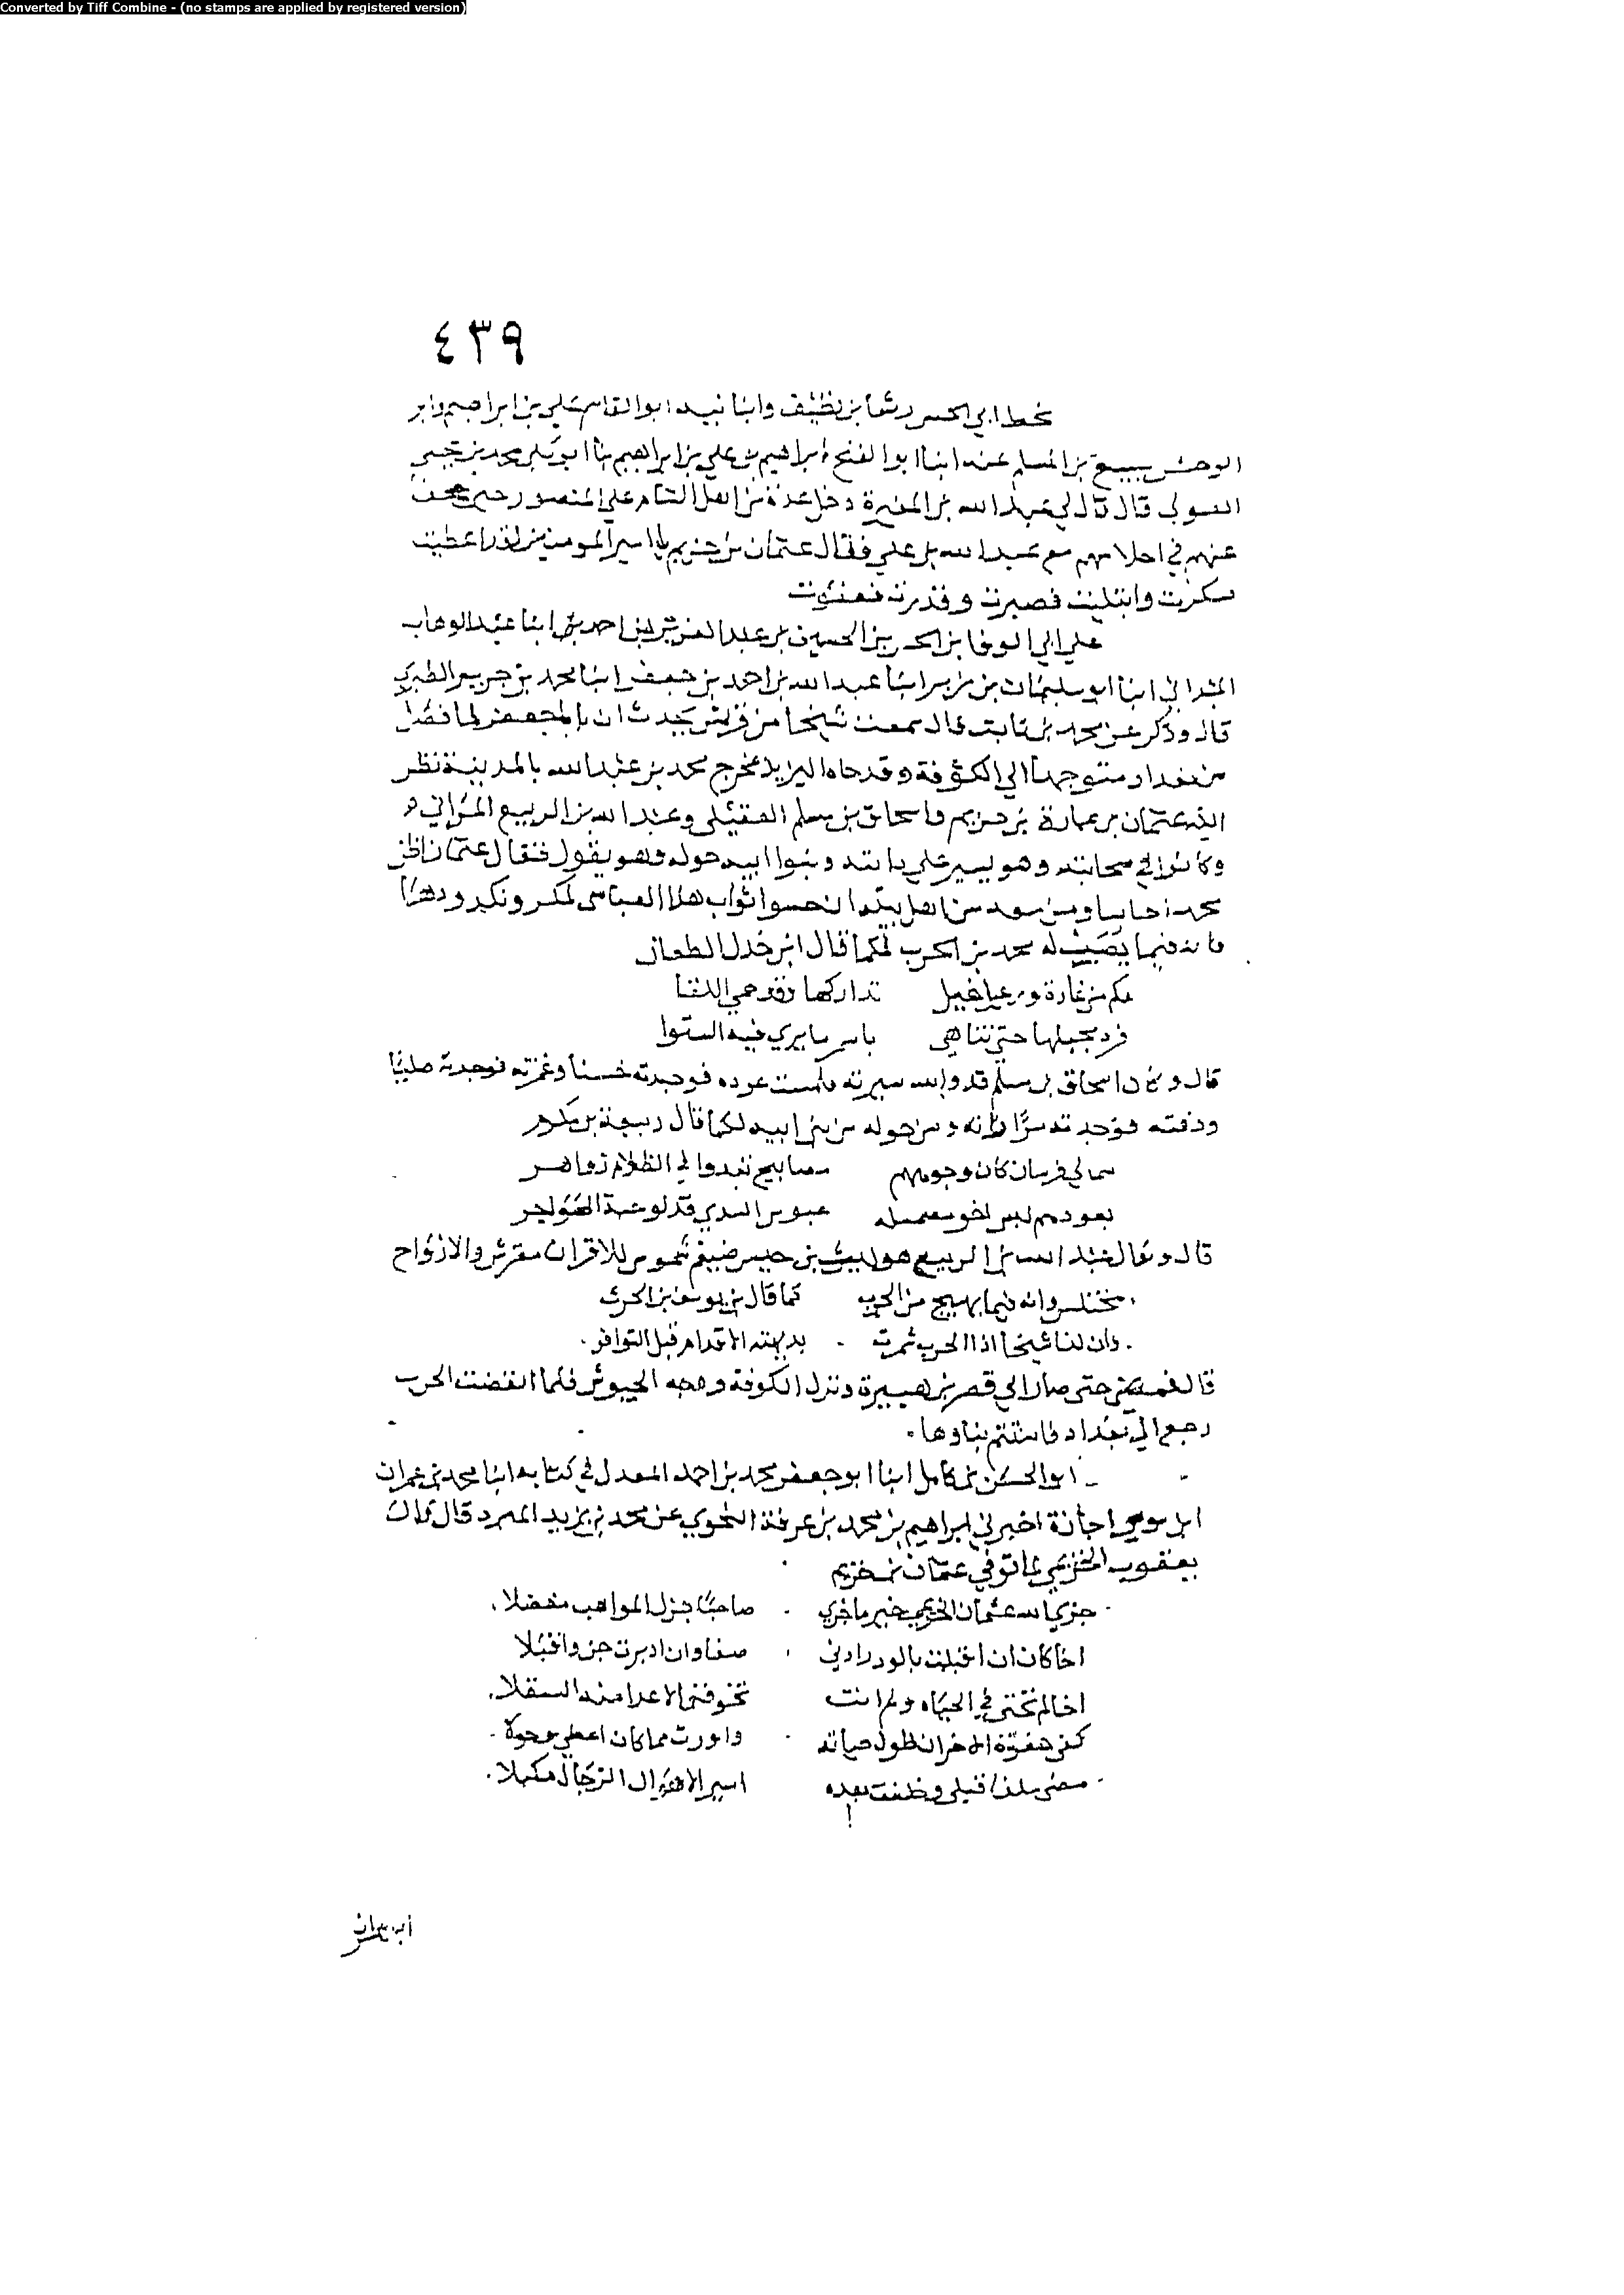 Converted by Tiff Combine - (no stamps are applied by registered version)
٤٣٩
بخط ابي الحسن رشا بن نظيف وانبا نيه ابو القاسم علي بن ابراهيم وابو
الوحش سبيع بن المسلم عنه انبا ابو الفتح ابراهيم بن علي بن ابراهيم نا ابو بكر محمد بن يحيى
الصولي قال قال لي عبد الله بن المغيرة دخل عدة من اهل الشام على المنصور حين
عنهم في مع عبد الله بن علي فقال عثمان بن خزيم يا امير المومنين لقد اعطيت
فشكرت وابتليت فصبرت وقدرت فعفوت
علي ابي الوفا بن الحسين بن عبد العزيز بن احمد انبا عبد الوهاب
الميداني انبا ابو سليمان بن زبر انبا عبد الله بن احمد بن جعفر انبا محمد بن جرير الطبري
قال وذكر عن محمد بن ثابت قال سمعت شيخا من قريش يحدث ان ابا جعفر لما فصل
من بغداد متوجها الي الكوفة وقد جاه البريد بمخرج محمد بن عبد الله بالمدينة نظر
اليه عثمان بن عمارة بن خزيم واسحاق بن مسلم العقيلي وعبد الله بن الربيع المداني
وكانوا في صحابته وهو يسير علي دابته وبنوا ابيه حوله وهو يقول فقال عثمان اظن
محمد ا خايبا ومن معه من اهل بيته ان حشوا ثواب هذا العباسي لمكر ونكير ودهاء
فانه فيما نصب له محمد بن الحرب لكما قال ابن جذل الطعان
فكم من غارة ورعيل خيل تداركها وقد حمي اللقا
فرد مخيلها حتى تناهي باسمر ما يري فيه التوا
قال وقال اسحاق بن مسلم قد والله سبرته ولمست عوده فوجدته خشنا وغمزته فوجدته صليبا
وذقته فوجدته مرا وانه ومن حوله من بني ابيه لكما قال ربيعة بن مكدم
سما لي فرسان كان وجوههم مصابيح تبدوا في الظلام زواهر
يقودهم ليس اخو عبوس السري قد لوحته الهواجر
قال وقال عبد الله بن الربيع هو ليث بن خيس ضيغم شموس للاقران مفترس والارواح
مختلس وانه فيما يهيج من الحرب كما قال بن يوسف بن الحرث
وان لنا شيخا اذا الحرب شمرت بديهته الاقدام قبل التوافر
قال فمضى حتى صار الي قصر بن هبيرة ونزل الكوفة ووجه الجيوش فلما انقضت الحرب
رجع الي بغداد فاستتم بناوها
ابو الحسن بن كامل انبا ابو جعفر محمد بن احمد المعدل في كتابه انبا محمد بن عمران
ابن موسى اجازة اخبرني ابراهيم بن محمد بن عرفة النحوي عن محمد بن يزيد المبرد قال قال
يعقوب الخزيمي لما توفي عثمان بن خزيم
جزي الله عثمان الخزيمي خير ما جزي صاحبا جزل المواهب مفضلا
اخا كان ان اقبلت بالود زادني صفا وان ادبرت حن واقبلا
اخا لم تخني في الحياة ولم ابت تخوفني الاعدا منه التنقلا
كفى جفوة الاخوان طول حياته واورث مما كان اعطي وخولا
مضى سلفا قبلي وخلفت بعده اسير الاهوال الرجال مكبلا